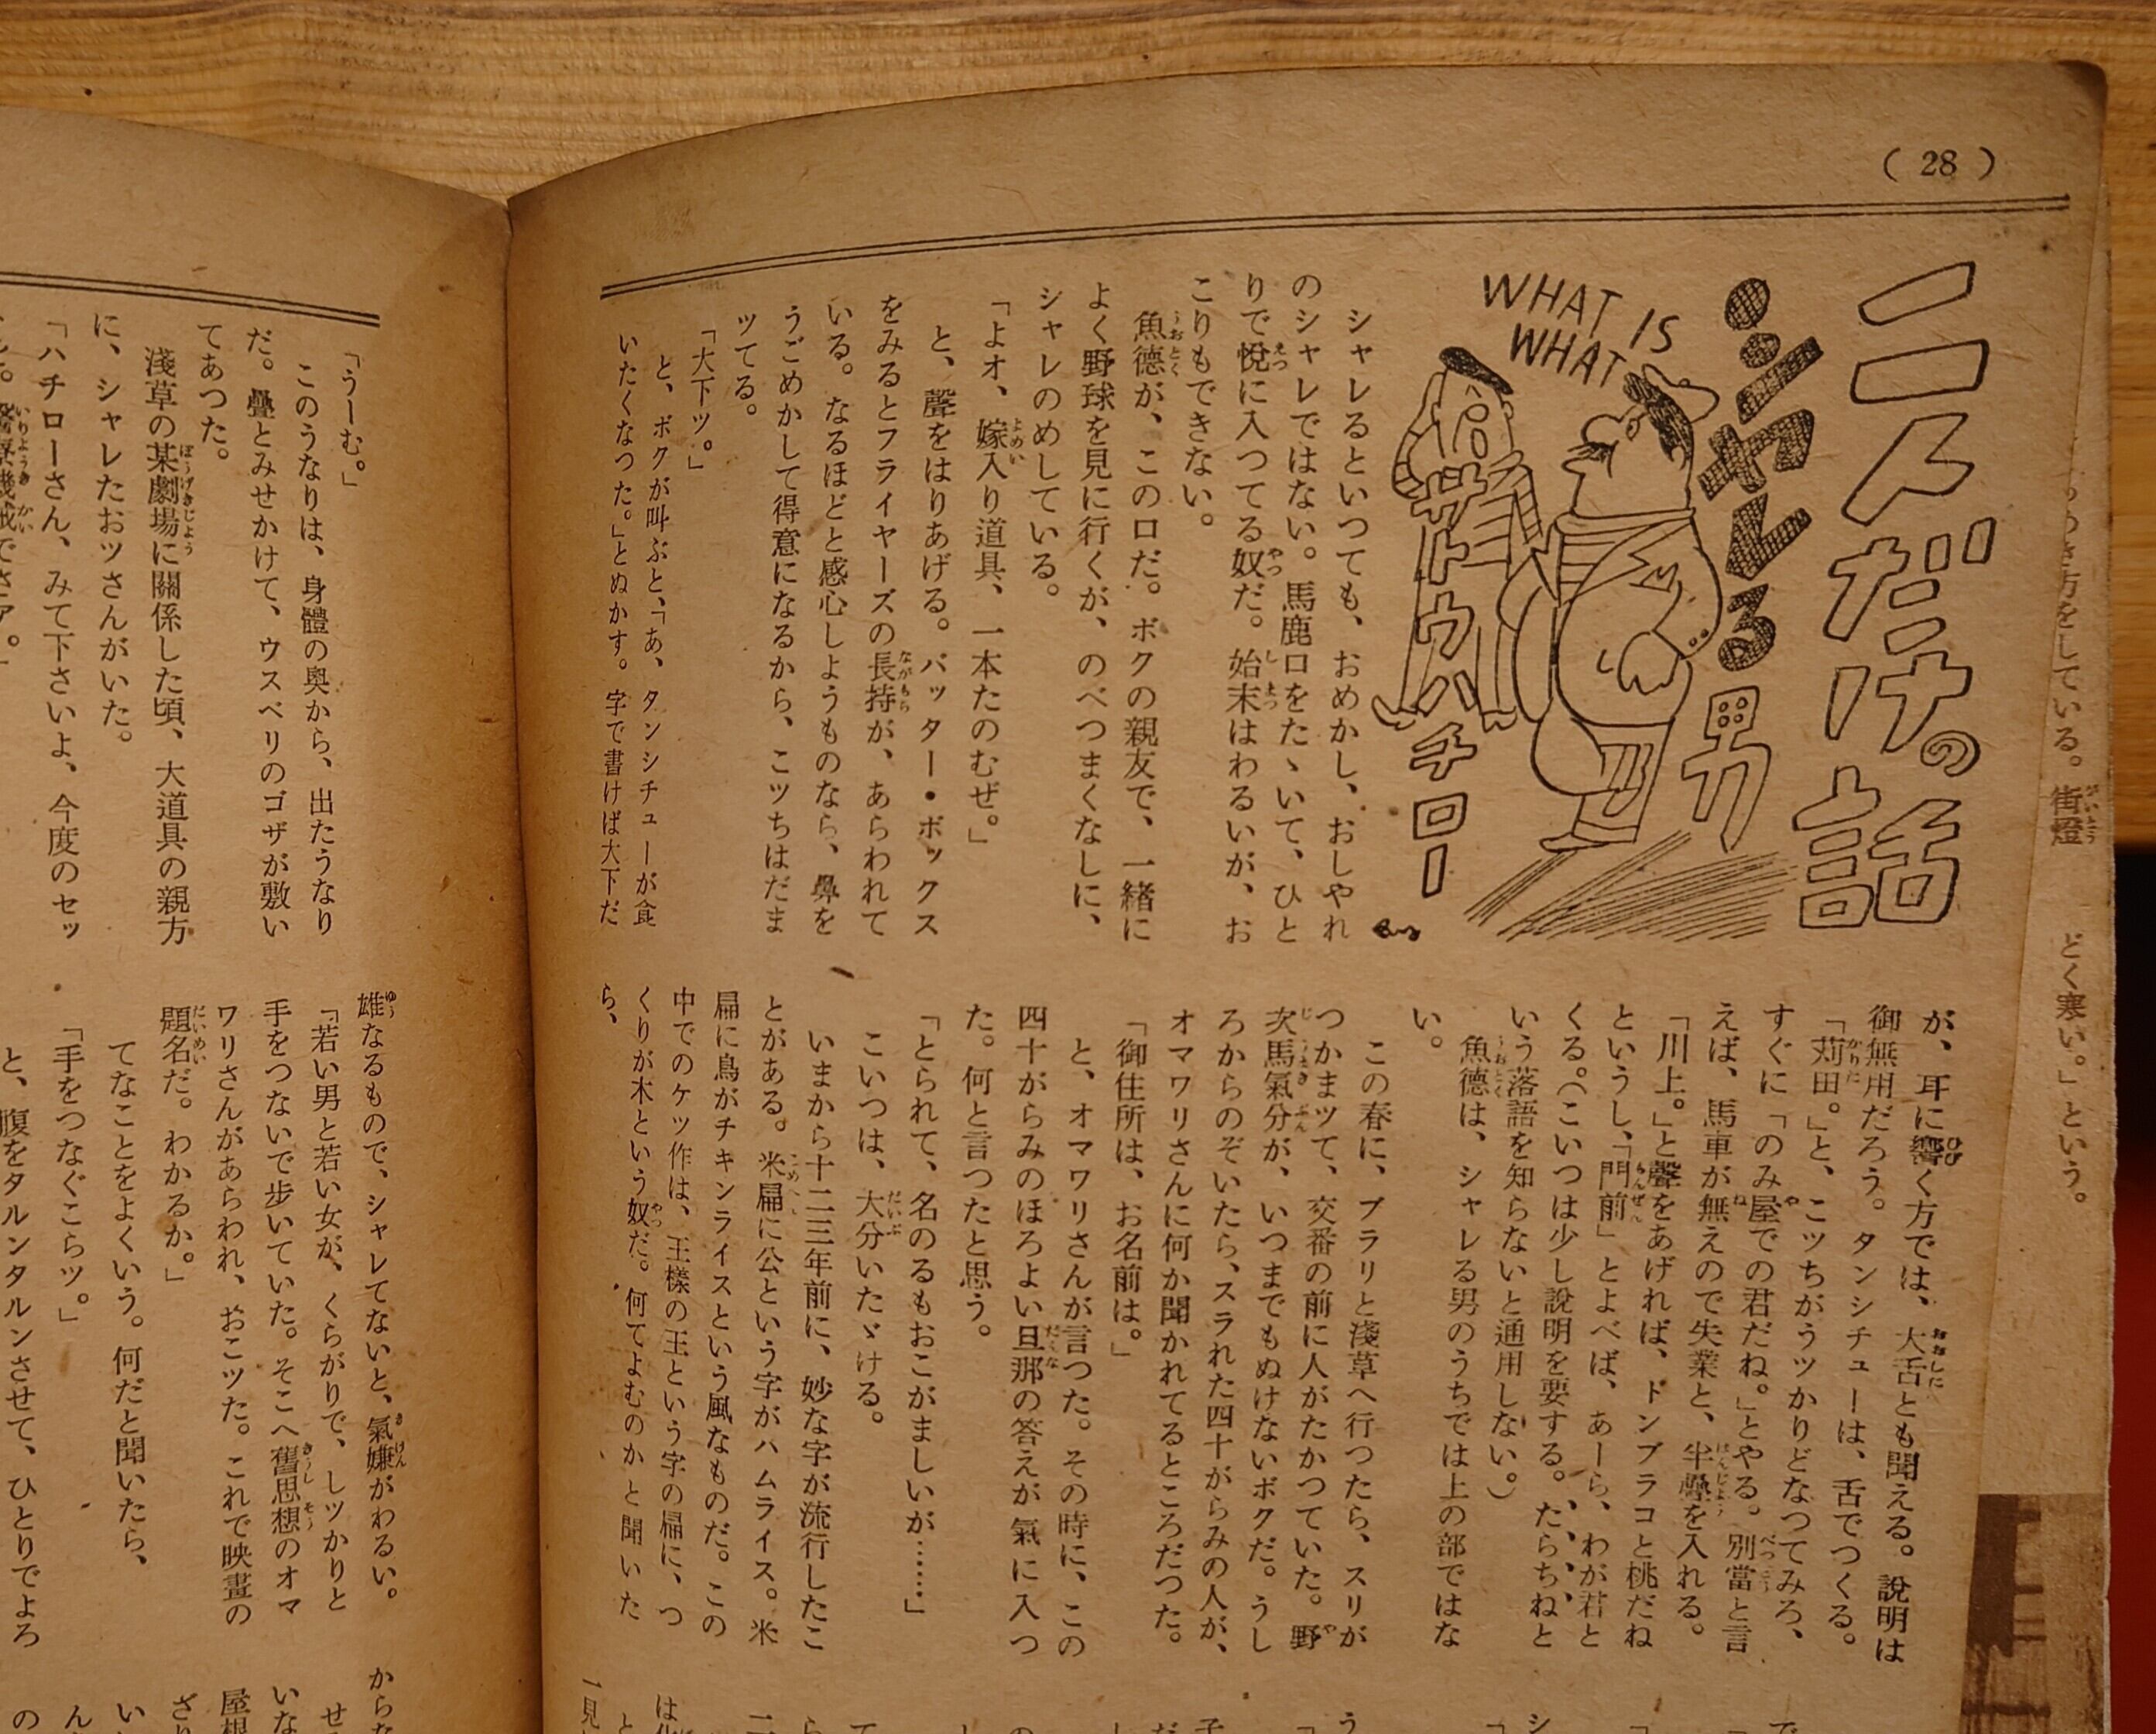 ( 28 )
二人だけの話
シャレる男
WHAT IS
WHAT
サトウハチロー
シャレるといつても、おめかし、おしやれ
のシャレではない。馬鹿口をたゝいて、ひと
りで悦に入つてる奴だ。始末はわるいが、お
こりもできない。
魚德が、この口だ。ボクの親友で、一緒に
よく野球を見に行くが、のべつまくなしに、
シャレのめしている。
「よオ、嫁入り道具、一本たのむぜ。」
と、聲をはりあげる。バッター・ボックス
をみるとフライヤーズの長持が、あらわれて
いる。なるほどと感心しようものなら、鼻を
うごめかして得意になるから、こツちはだま
ツてる。
「大下ツ。」
と、ボクが叫ぶと、「あ、タンシチューが食
いたくなつた。」とぬかす。字で書けば大下だ
が、耳に響く方では、大舌とも聞える。說明は
御無用だろう。タンシチューは、舌でつくる。
「苅田。」と、こツちがうツかりどなつてみろ、
すぐに「のみ屋での君だね。」とやる。別當と言
えば、馬車が無えので失業と、半疊を入れる。
「川上。」と聲をあげれば、ドンブラコと桃だね
というし、「門前」とよべば、あーら、わが君と
くる。（こいつは少し說明を要する。たらちねと
いう落語を知らないと通用しない。）
魚德は、シャレる男のうちでは上の部ではな
い。
この春に、ブラリと淺草へ行つたら、スリが
つかまツて、交番の前に人がたかつていた。野
次馬氣分が、いつまでもぬけないボクだ。うし
ろからのぞいたら、スラれた四十がらみの人が、
オマワリさんに何か聞かれてるところだつた。
「御住所は、お名前は。」
と、オマワリさんが言つた。その時に、この
四十がらみのほろよい旦那の答えが氣に入つ
た。何と言つたと思う。
「とられて、名のるもおこがましいが……」
こいつは、大分いたゞける。
いまから十二三年前に、妙な字が流行したこ
とがある。米扁に公という字がハムライス。米
扁に鳥がチキンライスという風なものだ。この
中でのケツ作は、王樣の王という字の扁に、つ
くりが木という奴だ。何てよむのかと聞いた
ら、
「うーむ。」
このうなりは、身體の奥から、出たうなり
だ。疊とみせかけて、ウスベリのゴザが敷い
てあつた。
淺草の某劇場に關係した頃、大道具の親方
に、シャレたおツさんがいた。
「ハチローさん、みて下さいよ、今度のセッ
雄なるもので、シャレてないと、氣嫌がわるい。
「若い男と若い女が、くらがりで、しツかりと
手をつないで步いていた。そこへ舊思想のオマ
ワリさんがあらわれ、おこツた。これで映畫の
題名だ。わかるか。」
てなことをよくいう。何だと聞いたら、
「手をつなぐこらツ。」
と、腹をタルンタルンさせて、ひとりでよろ
き方をしている。街燈
どく寒い。」という。